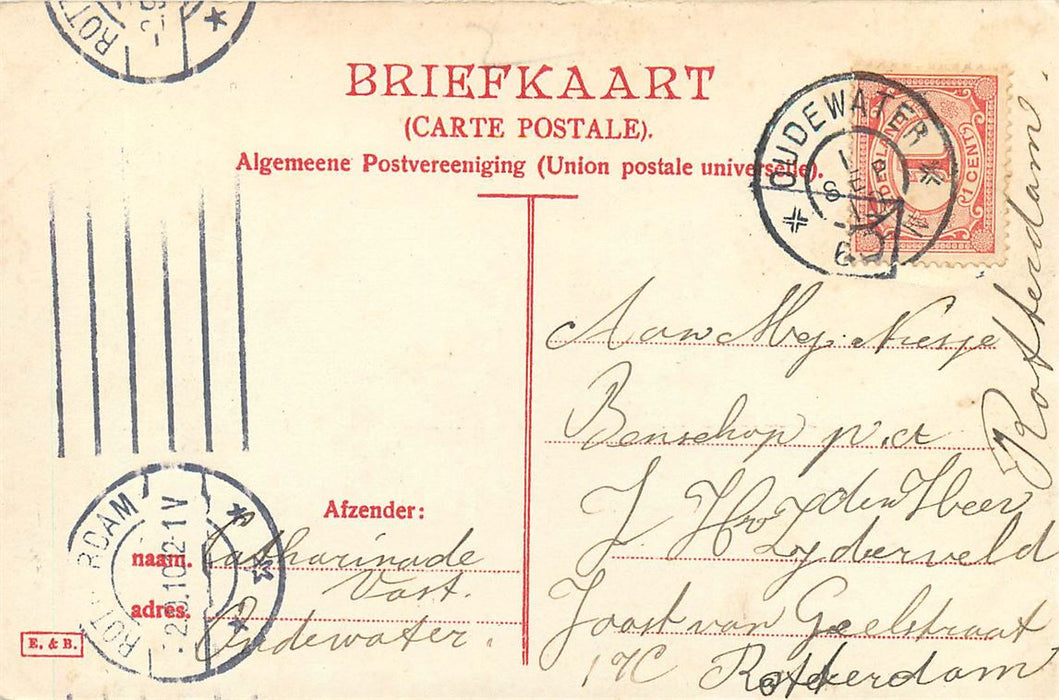 BRIEFKAART
(CARTE POSTALE).
Algemeene Postvereeniging (Union postale universelle).
OUDEWATER
1 SEP
NEDERLAND
1
(1 CENT)
Aan Mej. Niesje
Benschop p.a
den Heer
J. H. v Zyderveld
Joost van Geelstraat
17C Rotterdam
Rotterdam
ROTTERDAM
2.9.10 2-1V
Afzender:
naam. Catharina de
Vast.
adres. Oudewater.
E. & B.
ROT